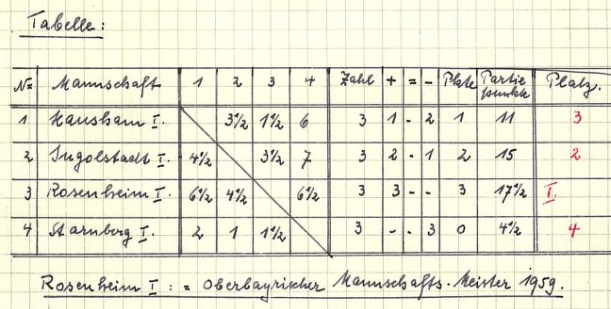 Tabelle:
No Mannschaft 1 2 3 4 Zahl + = - Pkte Partie punkte Platz.
1 Hausham I. 3½ 1½ 6 3 1 - 2 1 11 3
2 Ingolstadt I. 4½ 3½ 7 3 2 - 1 2 15 2
3 Rosenheim I. 6½ 4½ 6½ 3 3 - - 3 17½ I.
4 Starnberg I. 2 1 1½ 3 - - 3 0 4½ 4
Rosenheim I : = Oberbayrischer Mannschafts-Meister 1959.